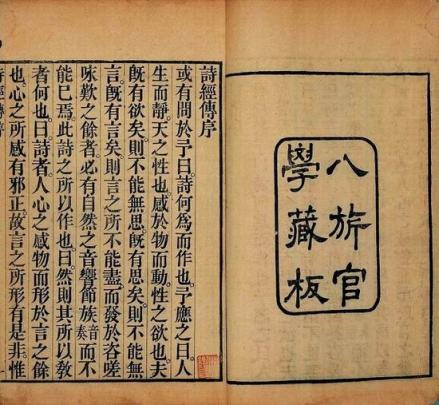 八旂官
學藏板
詩經傳序
或有問於予曰詩何為而作也予應之曰人
生而靜天之性也感於物而動性之欲也夫
既有欲矣則不能無思既有思矣則不能無
言既有言矣則言之所不能盡而發於咨嗟
咏歎之餘者必有自然之音響節族音奏而不
能已焉此詩之所以作也曰然則其所以教
者何也曰詩者人心之感物而形於言之餘
也心之所感有邪正故言之所形有是非惟
詩經傳序